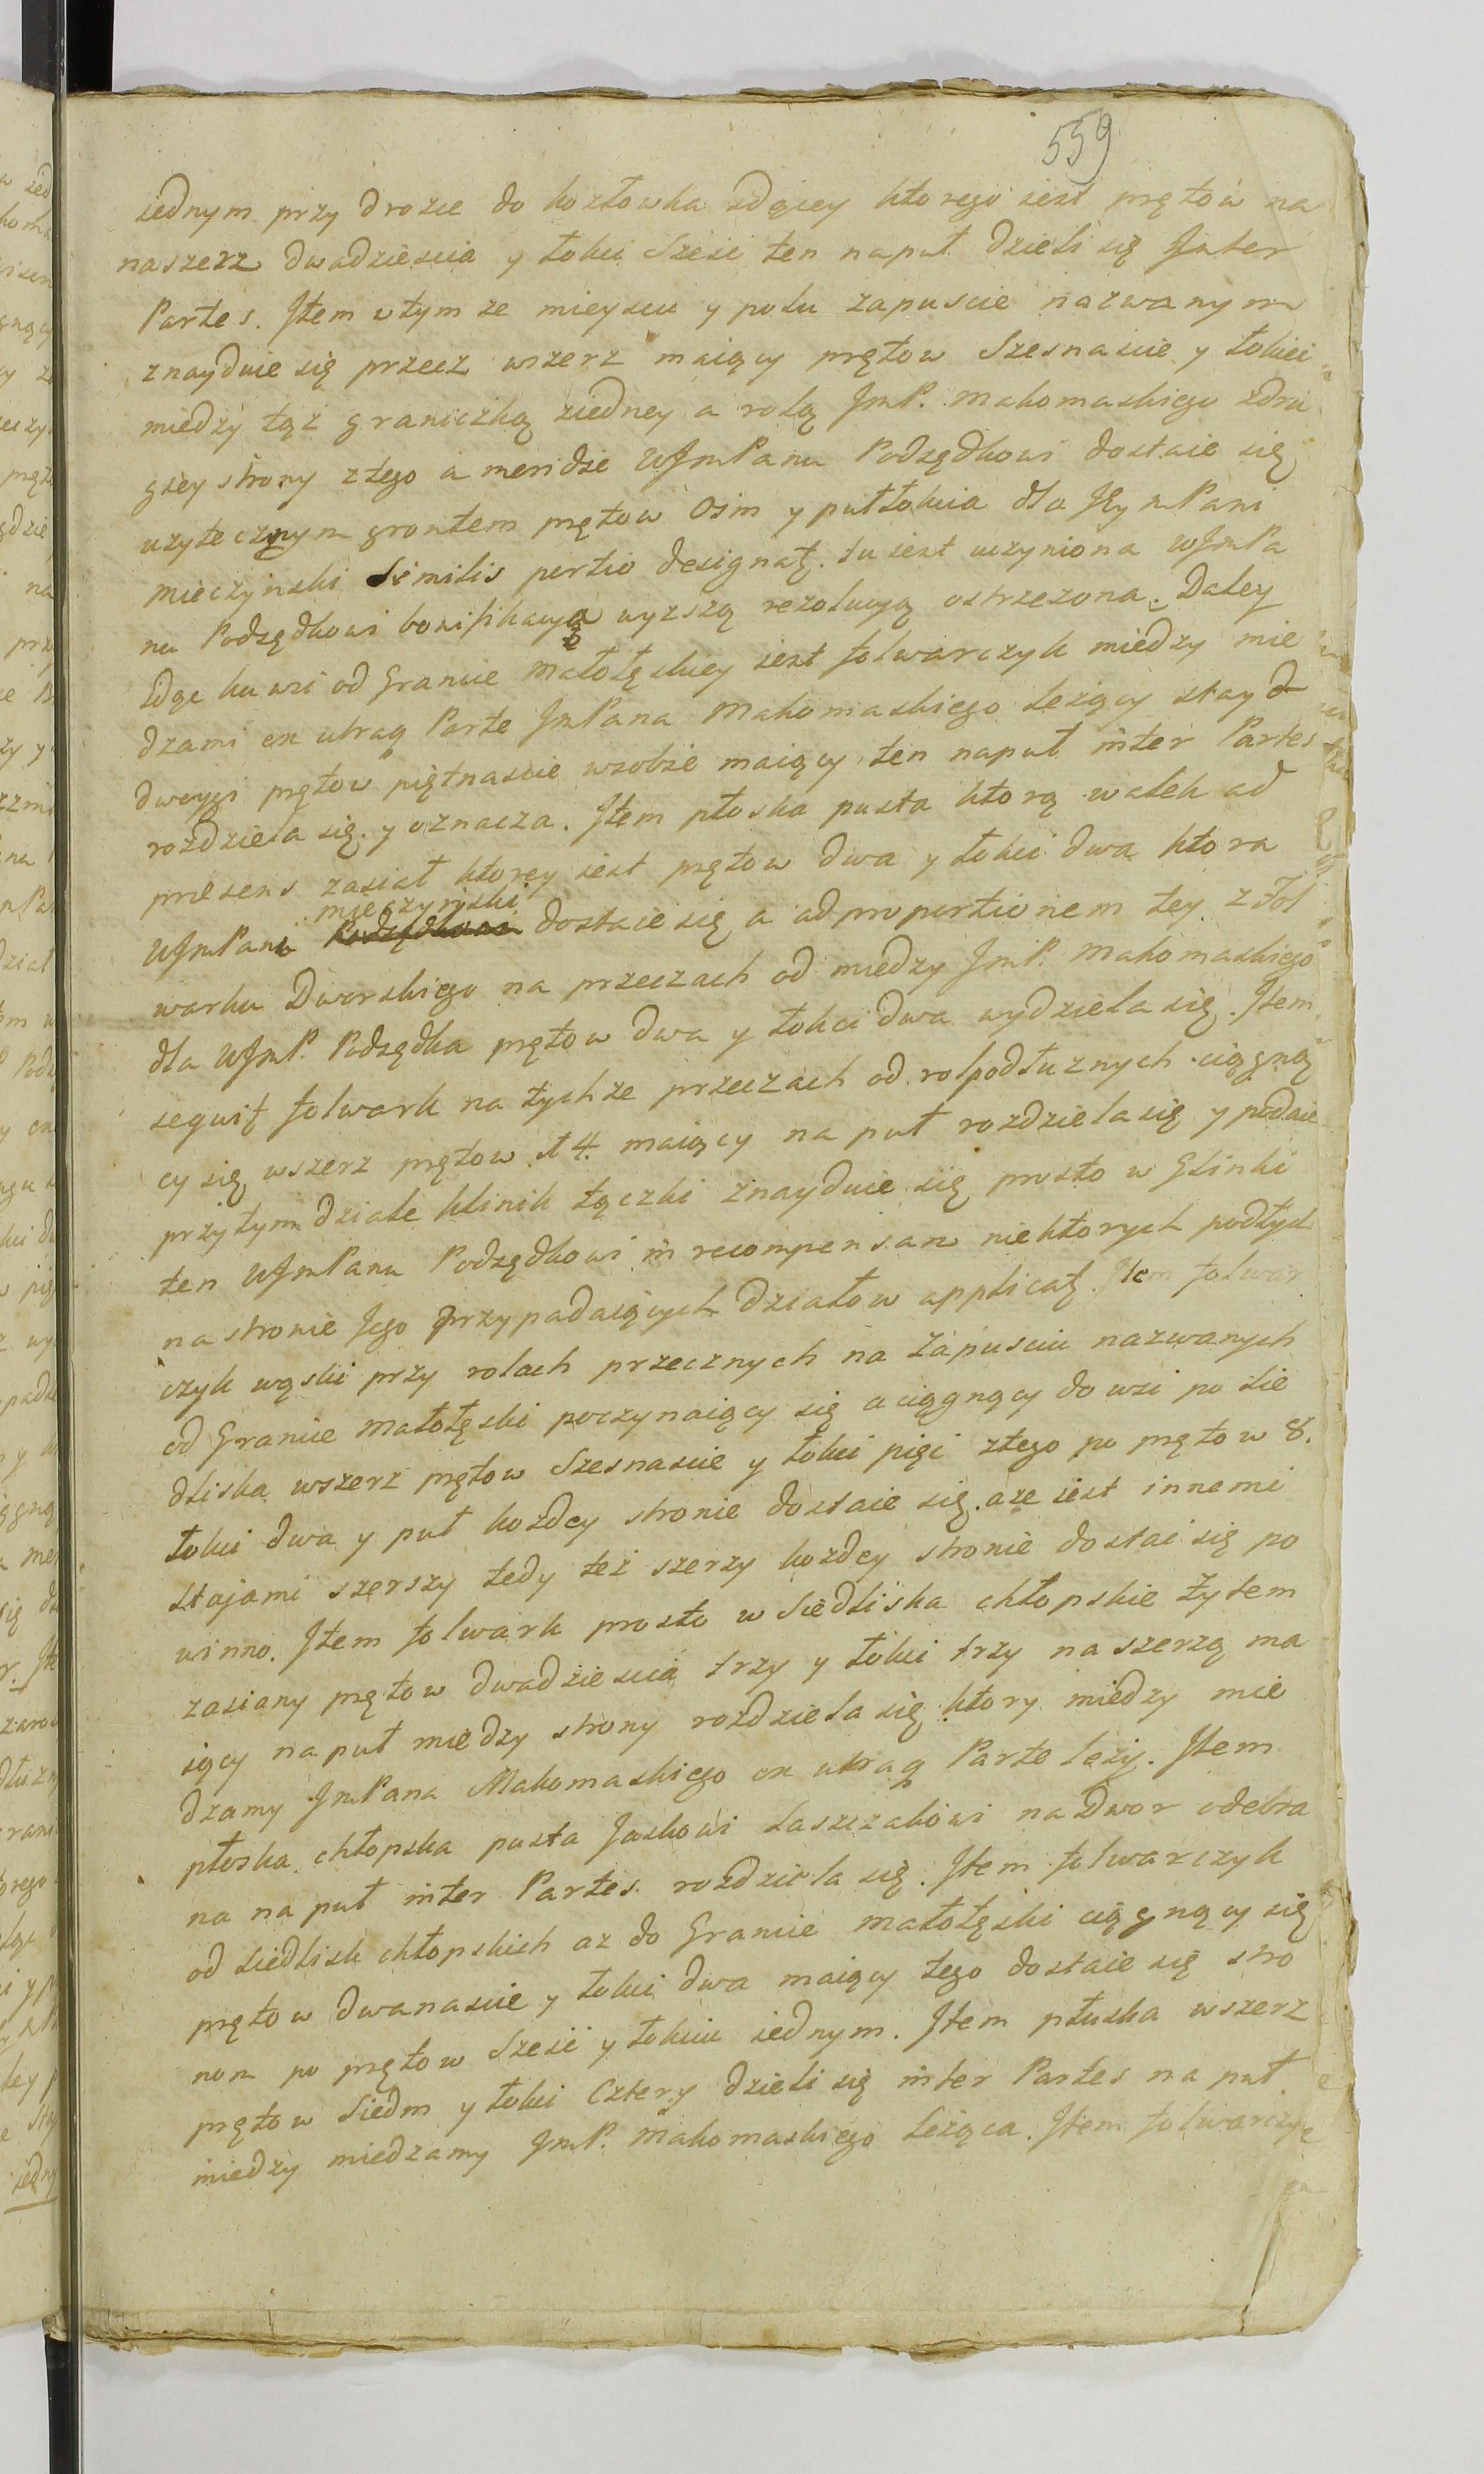 559
iednym przy drodze do kozłowka idącey ktorego iest prętów na
naszerz dwadziescia y łokci sześć ten naput dzieli się Inter
Partes. Item w tym ze mieyscu y polu zapuscie nazwanym
znayduie się przecz wszerz maiący prętow Szesnascie y łokci
miedzy tąż graniczką ziedney a rolą JmP. Makomaskiego zdru
giey strony z tego a meridie WJmPanu Podsędkowi dostaie się
uzytecznym grontem prętow Osm y put łokcia dla Jey mPani
Mieczynski similis portio designat. tu iest uczyniona WJmPa
nu Podsędkowi bonifikacya wyzszą rezolucyą ostrzezona. Daley
Idąc ku wsi od Granice Małołęckiey iest folwarczyk miedzy mie
dzami ex utraq Parte JmPana Makomaskiego leżący stayd
dwoygi prętow piętnascie wsobie maiący, ten naput inter Partes
rozdziela się y oznacza. Item płoska pusta ktorą Walek ad
praesens zasiał ktorey iest prętow dwa y łokci dwa ktora
mieczynski
WJmPani Podsędkowi dostaie się a ad proportionem tey z Fol
warku Dworskiego na przeczach od miedzy JmP. Makomaskiego
dla WJmP. Podsędka prętow dwa y łokci dwa wydziela się. Item
sequit folwark na tychze przeczach od rol podłuznych ciągną
cy się wszerz prętow 14. maiący na put rozdziela się y podaie
przytym dziale klinik łączki znayduie się prosto w Glinki
ten WJmPanu Podsędkowi in recompensam niektorych podłych
na stronie Jego przypadaiących działow applicat. Item folwar
czyk wąski przy rolach przecznych na Zapusciu nazwanych
od Granice Małołęski poczynaiący się a ciągnący do wsi po sie
dliska wszerz prętow Szesnascie y łokci pięć ztego po prętow 8.
łokci dwa y put kozdey stronie dostaie się. aże iest innemi
stajami szerszy tedy też szerzy kozdey stronie dostać się po
winno. Item folwark prosto w Siedliska chłopskie żytem
zasiany prętow dwadziescia trzy y łokci trzy na szerzą ma
iący naput miedzy strony rozdziela się ktory miedzy mie
dzamy JmPana Makomaskiego ex utraq Parte leży. Item
płoska chłopska pusta Jaskowi Laszczakowi na Dwor odebra
na naput inter Partes rozdziela się. Item folwarczyk
od siedlisk chłopskich az do Granice Małołęski ciągnący się
prętow dwanascie y łokci dwa maiący tego dostaie się stro
nom po prętow Szesć y łokciu iednym. Item płuska wszerz
prętow Siedm y łokci Cztery dzieli się inter Partes na put
miedzy miedzamy JmP. Makomaskiego leżąca. Item folwarczyk